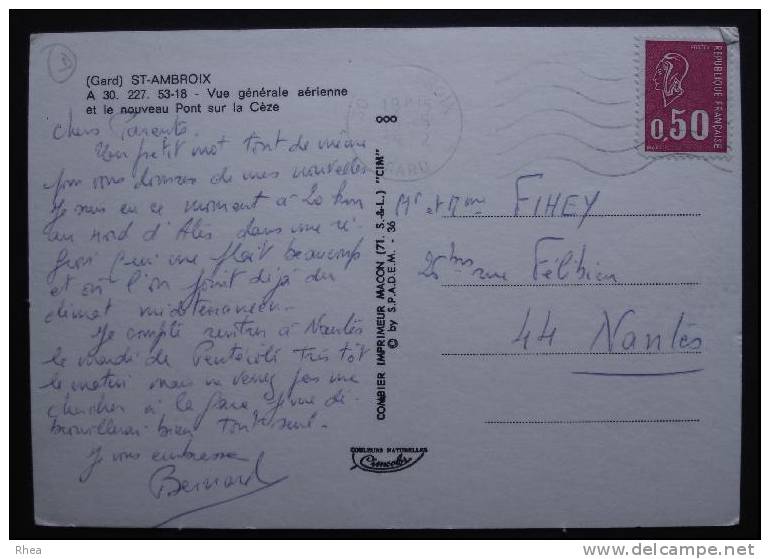 (Gard) ST-AMBROIX
A 30. 227. 53-18 - Vue générale aérienne
et le nouveau Pont sur la Cèze
chers Parents.
Un petit mot tout de même
pour vous donner de mes nouvelles
Je suis en ce moment à 20 km
au nord d'Alès dans une ré-
gion qui me plait beaucoup
et où l'on jouit déjà du
climat méditerranéen.
Je compte rentrer à Nantes
le mardi de Pentecôte très tôt
le matin mais ne venez pas me
chercher à la gare je me dé-
brouillerai bien tout seul.
Je vous embrasse
Bernard
COMBIER IMPRIMEUR MACON (71. S.-&-L.) "CIM"
© by S.P.A.D.E.M. - 36
COULEURS NATURELLES
Cimcolor
POSTES
REPUBLIQUE FRANÇAISE
0,50
GARD
Mr et Mme FIHEY
25 bis rue Félibien
44 Nantes
Rhea
delcampe.net